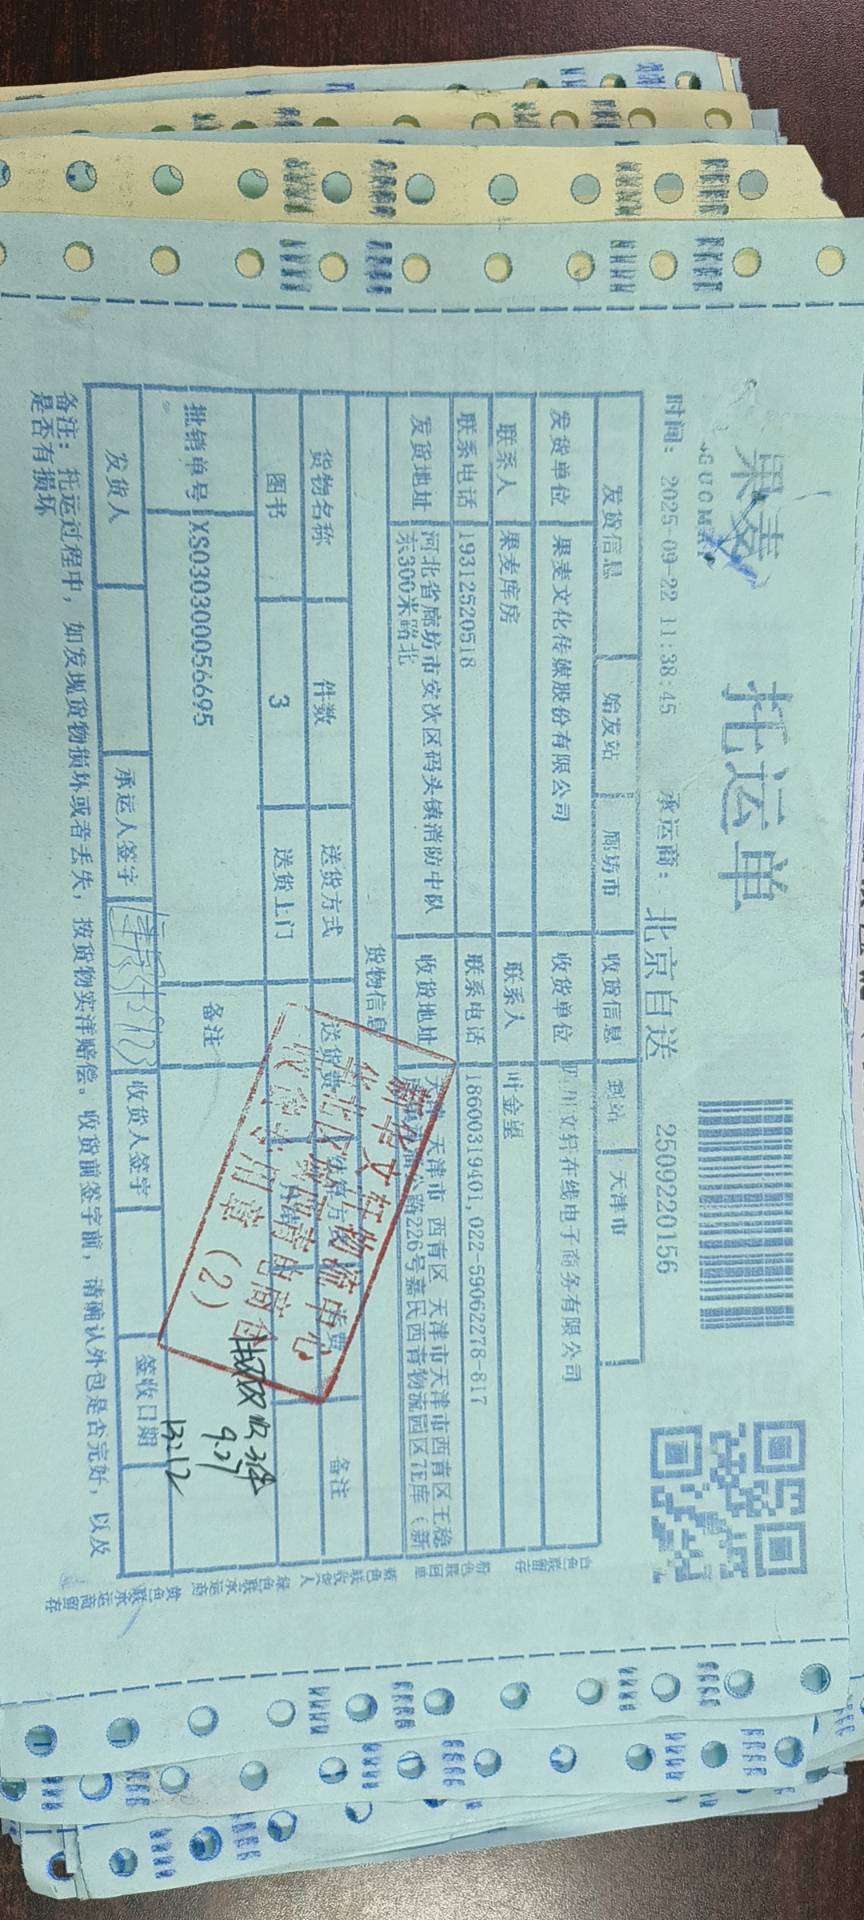 果麦
GUOMAI
托运单
时间: 2025-09-22 11:38:45 承运商: 北京自送 2509220156
发货信息 始发站 廊坊市 收货信息 到站 天津市
发货单位 果麦文化传媒股份有限公司 收货单位 四川文轩在线电子商务有限公司
联系人 果麦库房 联系人 叶金望
联系电话 19312520518 联系电话 18600319401,022-59062278-817
发货地址 河北省廊坊市安次区码头镇消防中队东300米路北 收货地址 天津市 西青区 天津市天津市西青区王稳
路226号嘉民西青物流园区7E库(新
货物信息
货物名称 件数 送货方式 送货费 备注
图书 3 送货上门
批销单号 XS030300056695 备注
发货人 承运人签字 收货人签字 签收日期
备注: 托运过程中, 如发现货物损坏或者丢失, 按货物实洋赔偿。收货前签字前, 请确认外包是否完好, 以及
是否有损坏
新华文轩物流中心
收货专用章 (2)
9.27
13:12
白色联留存
粉色联回单
蓝色联收货人
绿色联承运商
黄色联承运商留存